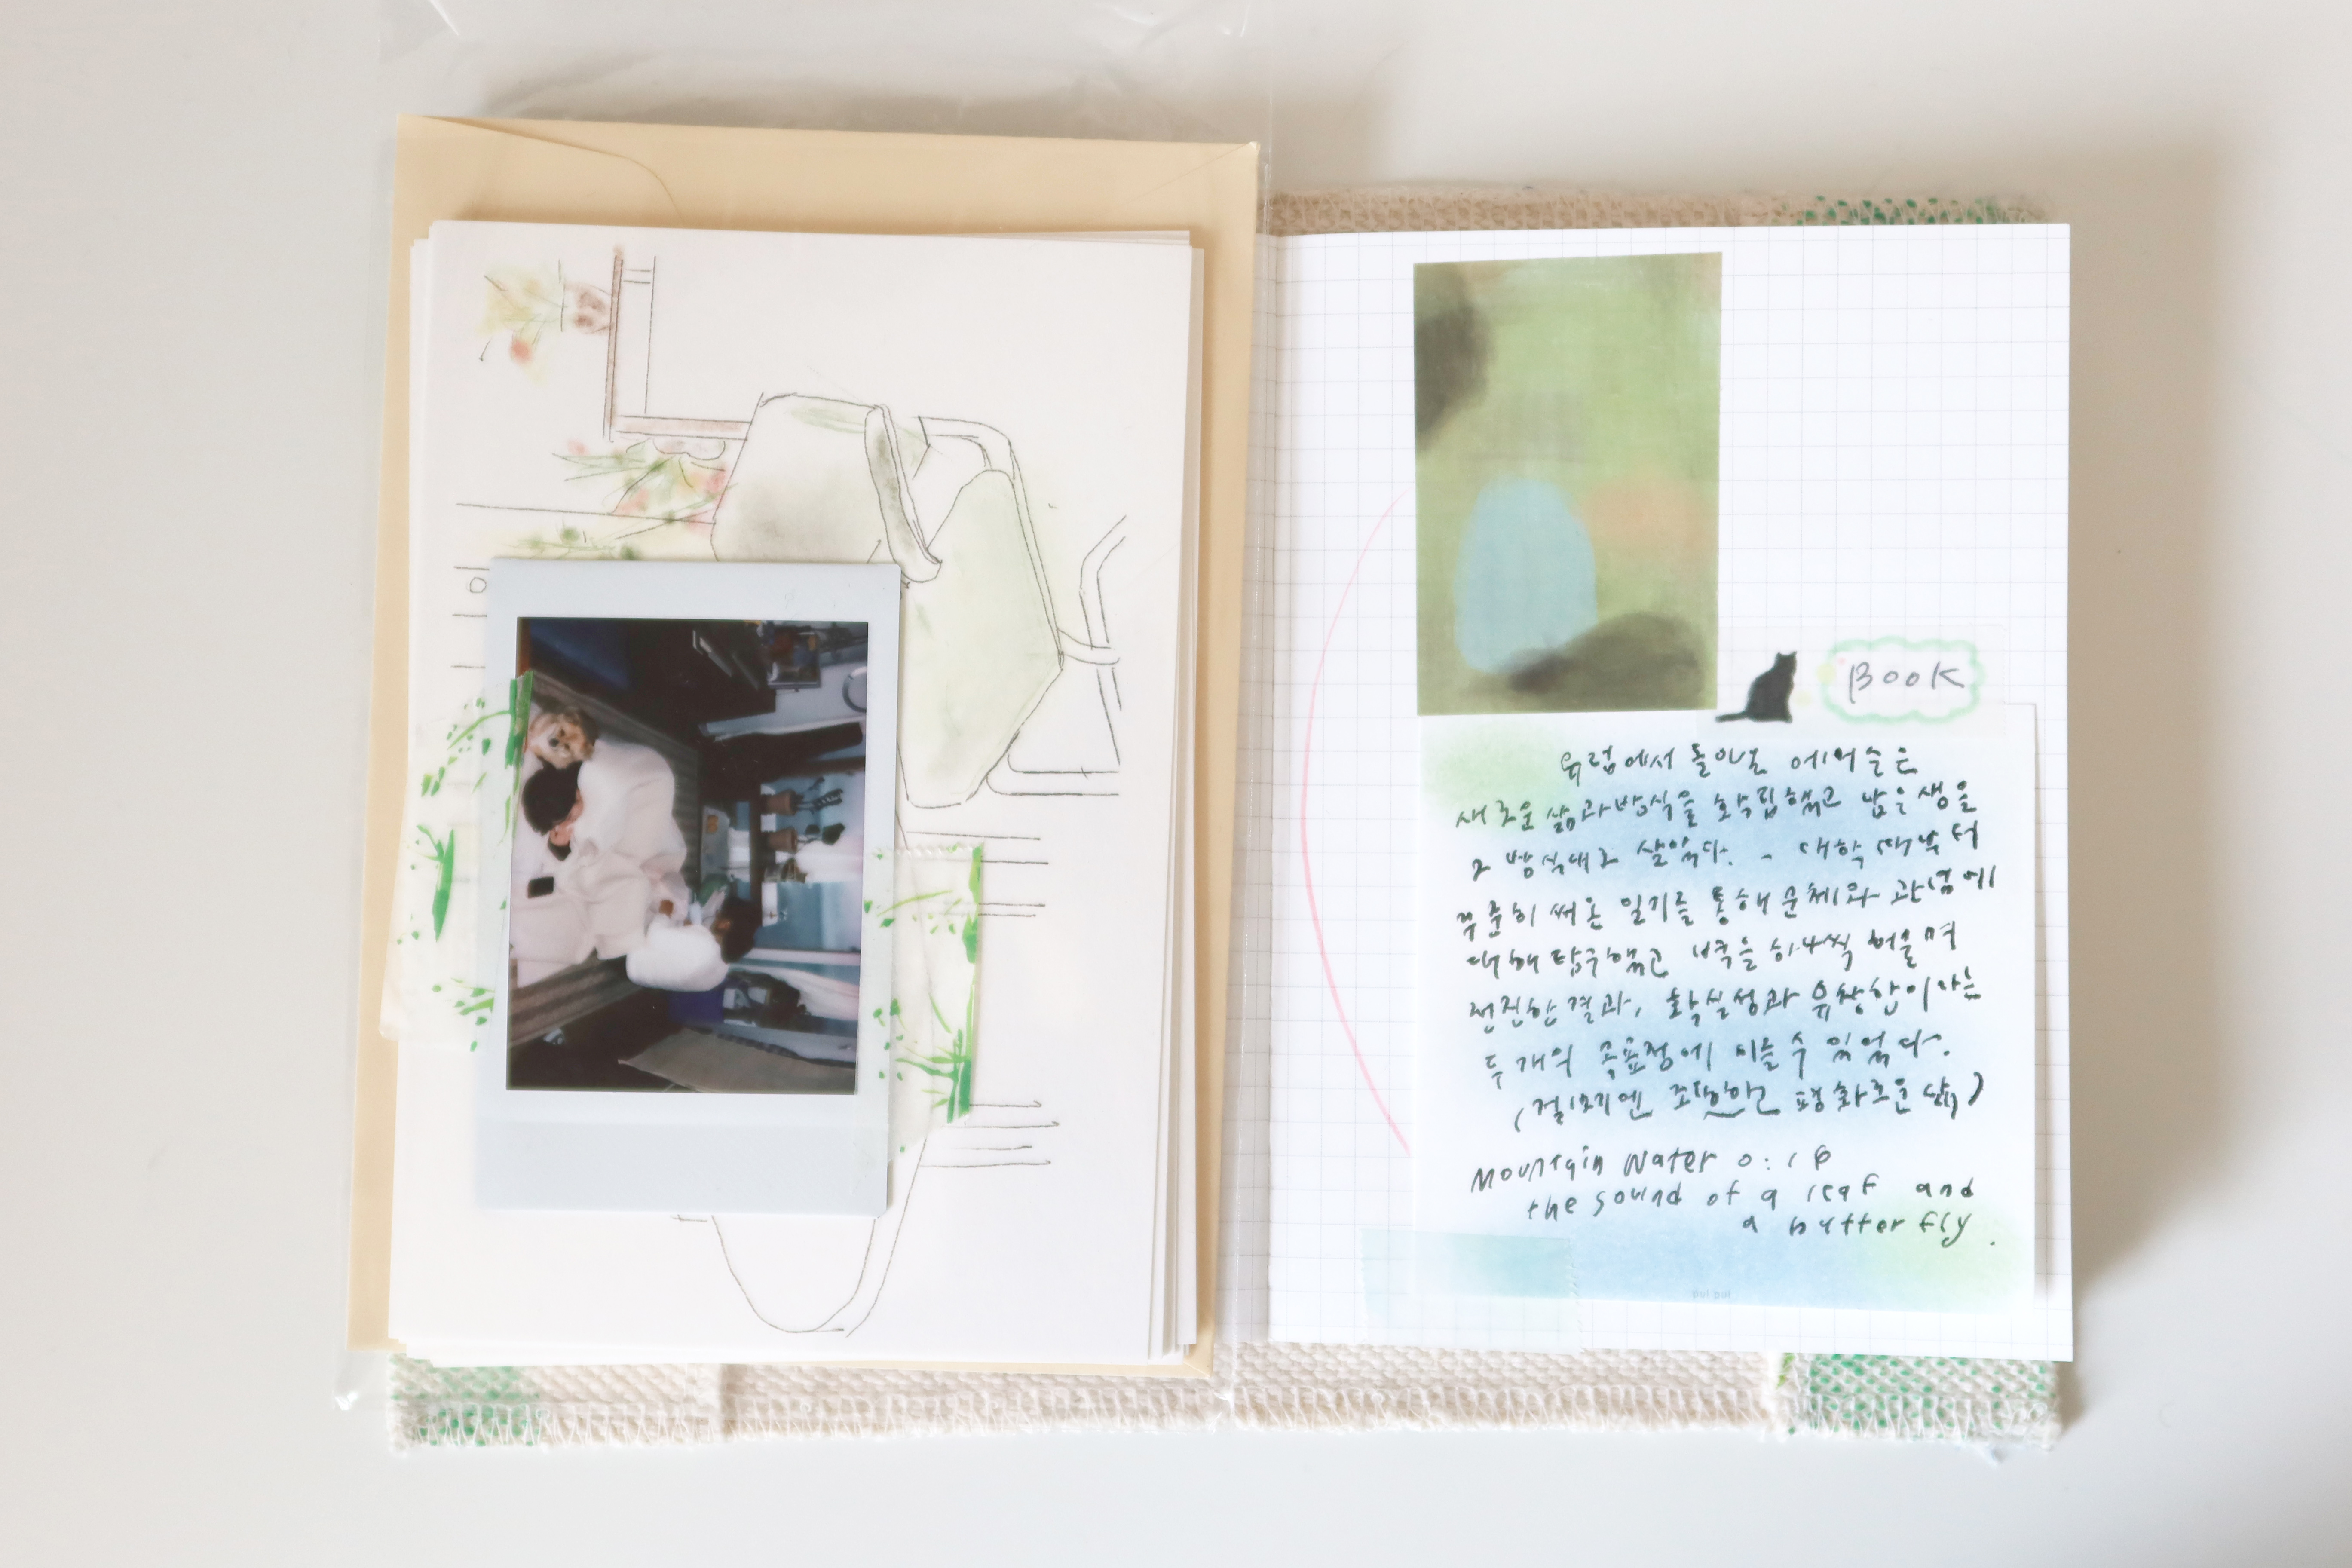 BOOK
유럽에서 돌아온 에머슨은
새로운 삶과 방식을 확립했고 남은 생을
그 방식대로 살았다. - 대학 때부터
꾸준히 써온 일기를 통해 문체와 관념에
대해 탐구했고 벽을 하나씩 허물며
전진한 결과, 확실성과 유창함이라는
두 개의 목표점에 이를 수 있었다.
(걸어가면 조용한 평화로운 삶)
Mountain Water 0:16
the sound of a leaf and
a butterfly.